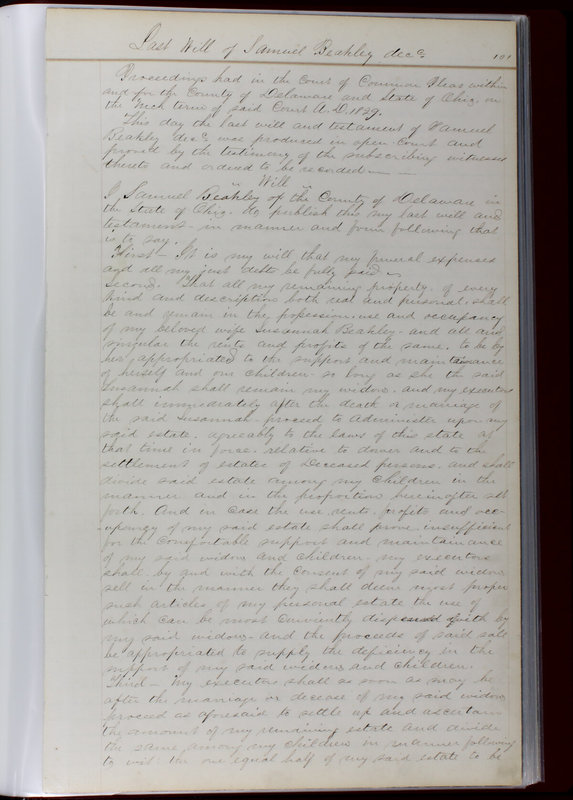 Last Will of Samuel Beakley decd.
101
Proceedings had in the Court of Common Pleas within
and for the County of Delaware and State of Ohio, on
the term of said Court A.D. 1839.
This day the last will and testament of Samuel
Beakley decd. was produced in open Court and
proved by the testimony of the subscribing witnesses
thereto and ordered to be recorded
" Will "
I, Samuel Beakley of the County of Delaware in
the State of Ohio. do publish this my last will and
testament - in manner and form following that
is to say.
First - It is my will that my funeral expenses
and all my just debts be fully paid
Second. That all my remaining property. of every
kind and description both real and personal. shall
be and remain in the possession. use and occupancy
of my beloved wife Susannah Beakley. and all and
singular the rents and profits of the same. to be by
her appropriated to the support and maintainance
of herself and our children. so long as she the said
Susannah shall remain my widow. and my executors
shall immediately after the death or marriage of
the said Susannah. proceed to Administer upon my
said estate. agreeably to the laws of this state at
that time in force. relative to dower and to the
settlement of estates of Deceased persons. and shall
divide said estate among my children in the
manner and in the proportion hereinafter set
forth. And in case the use, rents. profits and occ-
-upancy of my said estate shall prove insufficient
for the comfortable support and maintainance
of my said widow and children. my executors
shall. by and with the consent of my said widow
sell in the manner they shall deem most proper
such articles of my personal estate the use of
which can be most dispensed with by
my said widow. and the proceeds of said sale
be appropriated to supply the deficiency in the
support of my said widow and children.
Third - My executors shall as soon as may be
after the marriage or decease of my said widow
proceed as aforesaid to settle up and ascertain
the amount of my remaining estate and divide
the same among my children in manner following
to wit. the one equal half of my said estate to be